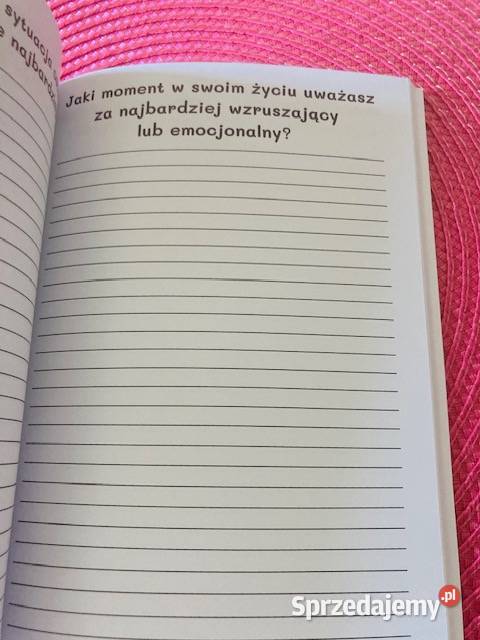 sytuacja
najbardz
Jaki moment w swoim życiu uważasz
za najbardziej wzruszający
lub emocjonalny?
Sprzedajemy.pl